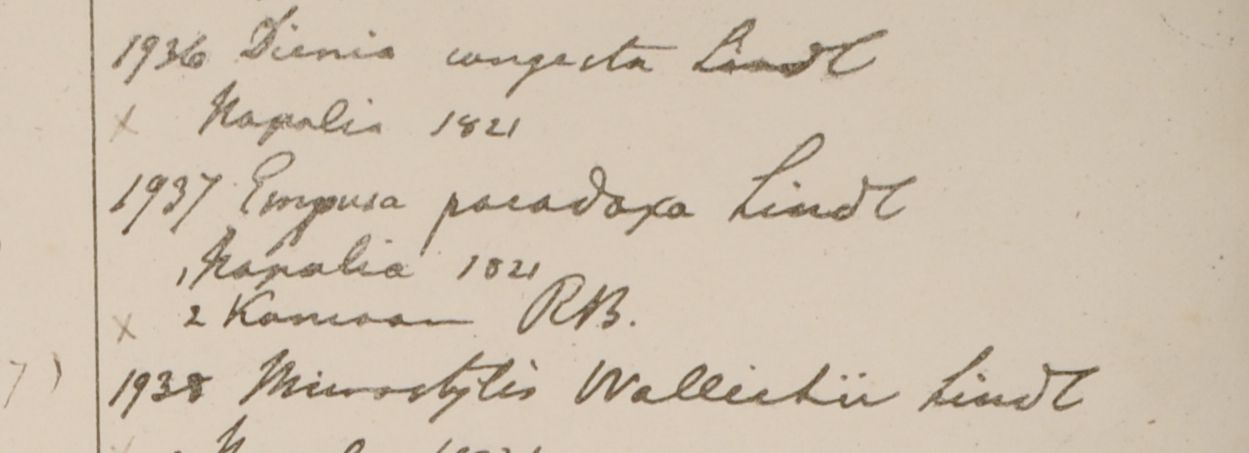 1936 Dienia congesta Lindl
x Napalia 1821
1937 Empusa paradoxa Lindl
1 Napalia 1821
x 2 Kamaon RB.
7)
1938 Microstylis Wallichii Lindl